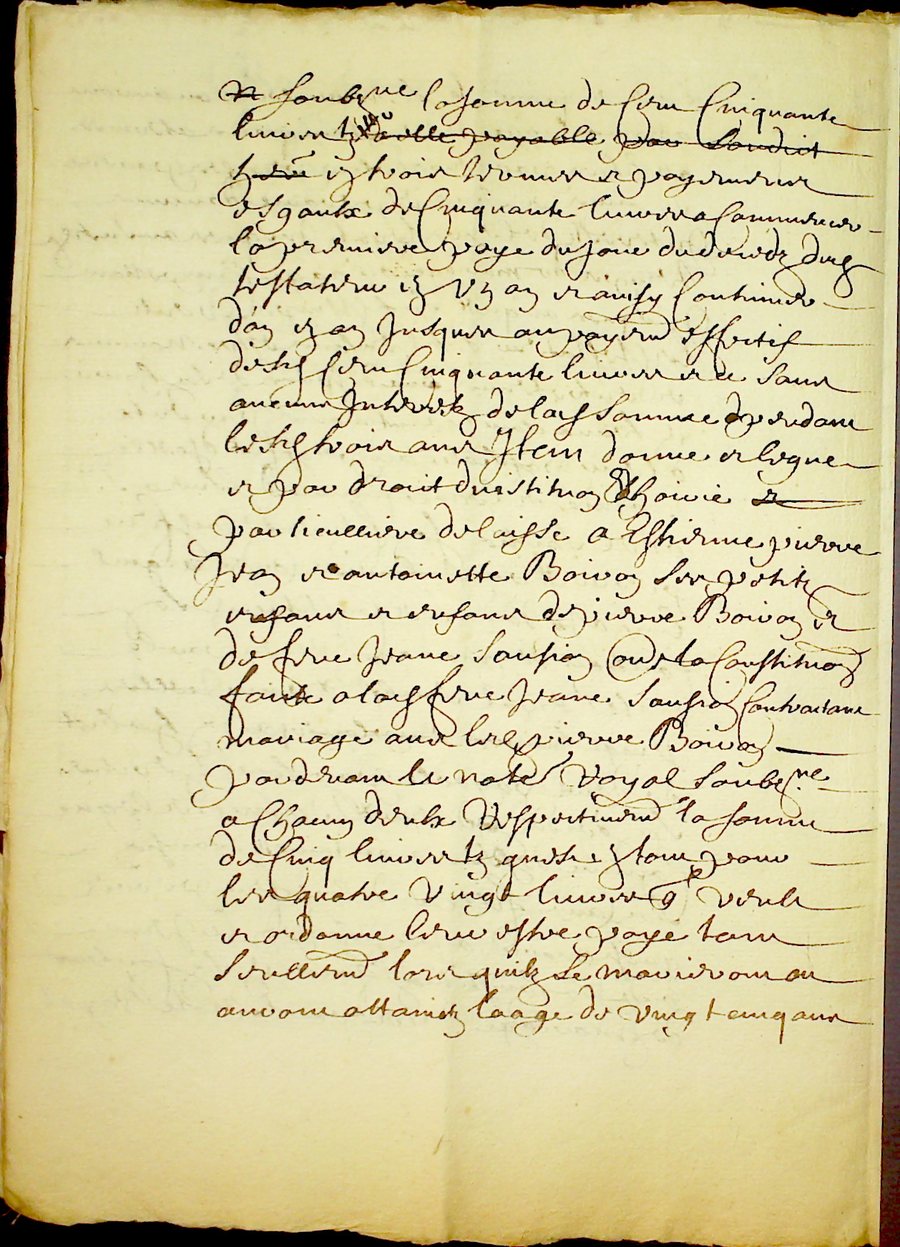 et soubzne la somme de Cent Cinquante
livres tz icelle payable par sondict
her en trois termes et payements
esgaulx de Cinquante livres a Commencer
la premiere paye du jour du deceds dud
testateur en Un an et ainsy Continuer
dan en an Jusques au payemt effectif
desd Cent Cinquante livres et ce sans
aucuns Interestz de lad somme pendant
lesd trois ans Item donne et legue
et par droit dinstituon et hoirie
particulliere delaisse a Esthienne pierre
Jean et antoinette Boiron ses petitz
enfans et enfans de pierre Boiron et
de feue Jeane Sausion oultre la Constituon
faite a lad feue Jeane Sausion Contractant
mariage avec led pierre Boiron
par devant le note Royal soubzne
a Chacun deulx Respectivemt la somme
de Cinq livres tz questes tant pour
les quatre Vingt livres q veult
et ordonne leur estre payé tant
seullemt lors quilz se marieront ou
auront attaintz laage de vingt cinq ans